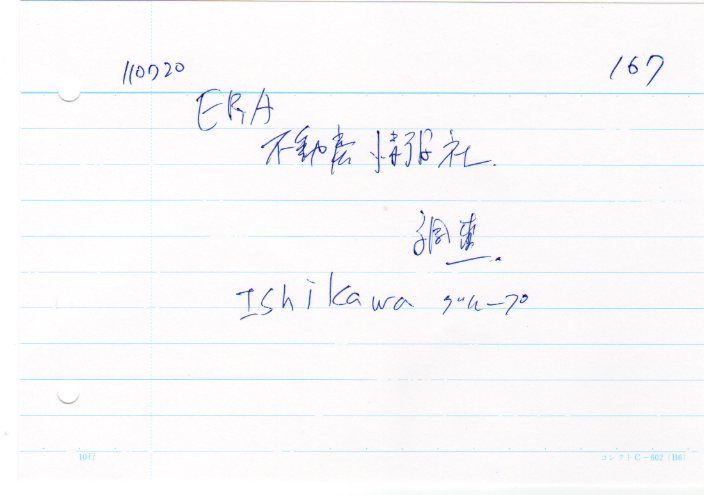 110720
167
ERA
不動産情報社.
調査.
Ishikawa グループ
10行
コレクト C-602 (B6)